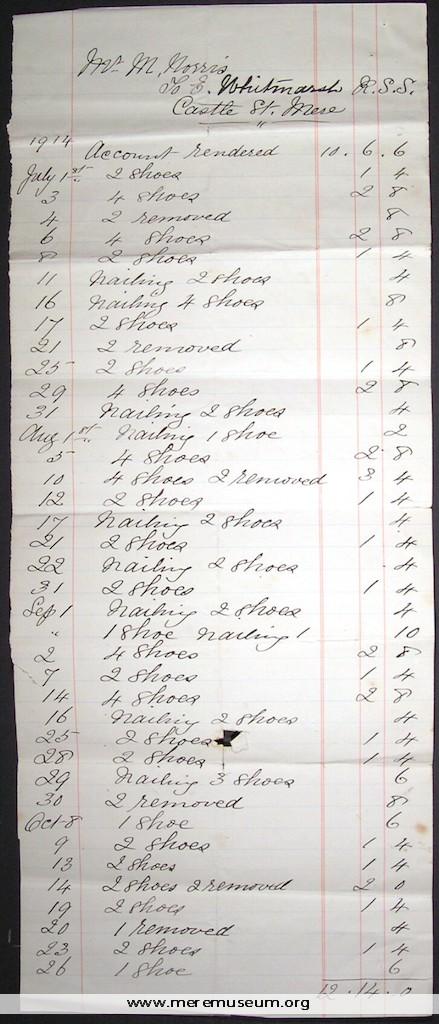 Mr M, Norris
To E. Whitmarsh R.S.S.
Castle St. Mere
1914 Account rendered 10. 6. 6
July 1st 2 Shoes 1 4
3 4 Shoes 2 8
4 2 removed 8
6 4 Shoes 2 8
8 2 Shoes 1 4
11 Nailing 2 Shoes 4
16 Nailing 4 Shoes 8
17 2 Shoes 1 4
21 2 removed 8
25 2 Shoes 1 4
29 4 Shoes 2 8
31 Nailing 2 Shoes 4
Aug 1st. Nailing 1 Shoe 2
5 4 Shoes 2 8
10 4 Shoes 2 removed 3 4
12 2 Shoes 1 4
17 Nailing 2 Shoes 4
21 2 Shoes 1 4
22 Nailing 2 Shoes 4
31 2 Shoes 1 4
Sep 1 Nailing 2 Shoes 4
" 1 Shoe Nailing 1 10
2 4 Shoes 2 8
7 2 Shoes 1 4
14 4 Shoes 2 8
16 Nailing 2 Shoes 4
25 2 Shoes 1 4
28 2 Shoes 1 4
29 Nailing 3 Shoes 6
30 2 removed 8
Oct 8 1 Shoe 6
9 2 Shoes 1 4
13 2 Shoes 1 4
14 2 Shoes 2 removed 2 0
19 2 Shoes 1 4
20 1 removed 4
23 2 Shoes 1 4
26 1 Shoe 6
12. 14. 0
www.meremuseum.org